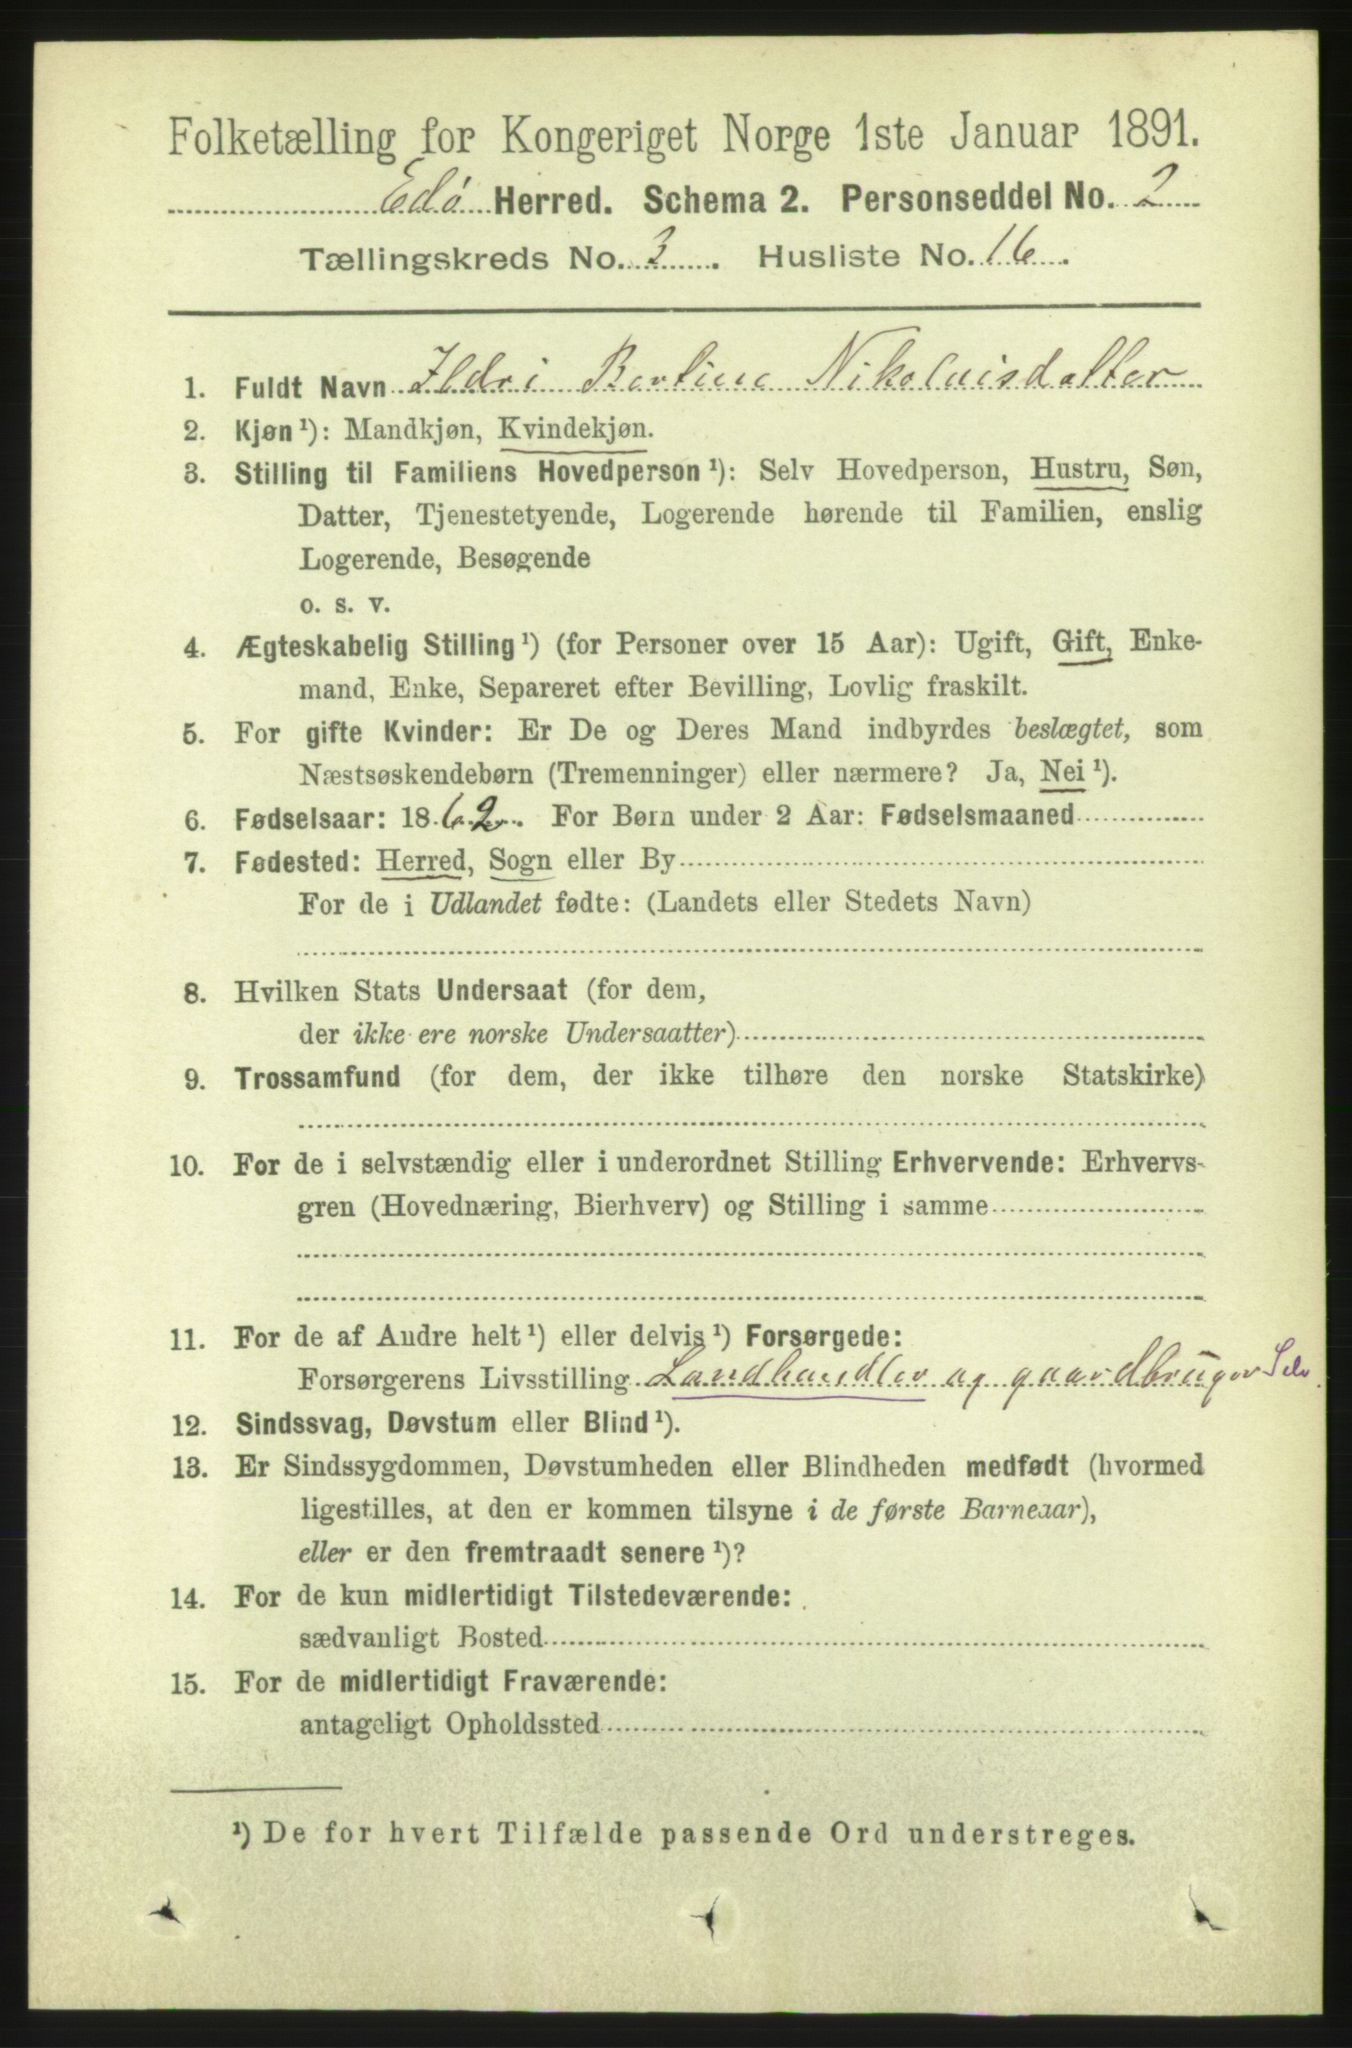 Folketælling for Kongeriget Norge 1ste Januar 1891.
Edø Herred. Schema 2. Personseddel No. 2
Tællingskreds No. 3. Husliste No. 16.
1. Fuldt Navn Ildri Bertine Nikolaisdatter
2. Kjøn¹): Mandkjøn, Kvindekjøn.
3. Stilling til Familiens Hovedperson¹): Selv Hovedperson, Hustru, Søn,
Datter, Tjenestetyende, Logerende hørende til Familien, enslig
Logerende, Besøgende
o. s. v.
4. Ægteskabelig Stilling¹) (for Personer over 15 Aar): Ugift, Gift, Enke-
mand, Enke, Separeret efter Bevilling, Lovlig fraskilt.
5. For gifte Kvinder: Er De og Deres Mand indbyrdes beslægtet, som
Næstsøskendebørn (Tremenninger) eller nærmere? Ja, Nei¹).
6. Fødselsaar: 1862. For Børn under 2 Aar: Fødselsmaaned
7. Fødested: Herred, Sogn eller By
For de i Udlandet fødte: (Landets eller Stedets Navn)
8. Hvilken Stats Undersaat (for dem,
der ikke ere norske Undersaatter)
9. Trossamfund (for dem, der ikke tilhøre den norske Statskirke)
10. For de i selvstændig eller i underordnet Stilling Erhvervende: Erhvervs-
gren (Hovednæring, Bierhverv) og Stilling i samme
11. For de af Andre helt¹) eller delvis¹) Forsørgede:
Forsørgerens Livsstilling Landhandler og gaardbruger Selv.
12. Sindssvag, Døvstum eller Blind¹).
13. Er Sindssygdommen, Døvstumheden eller Blindheden medfødt (hvormed
ligestilles, at den er kommen tilsyne i de første Barneaar),
eller er den fremtraadt senere¹)?
14. For de kun midlertidigt Tilstedeværende:
sædvanligt Bosted
15. For de midlertidigt Fraværende:
antageligt Opholdssted
¹) De for hvert Tilfælde passende Ord understreges.